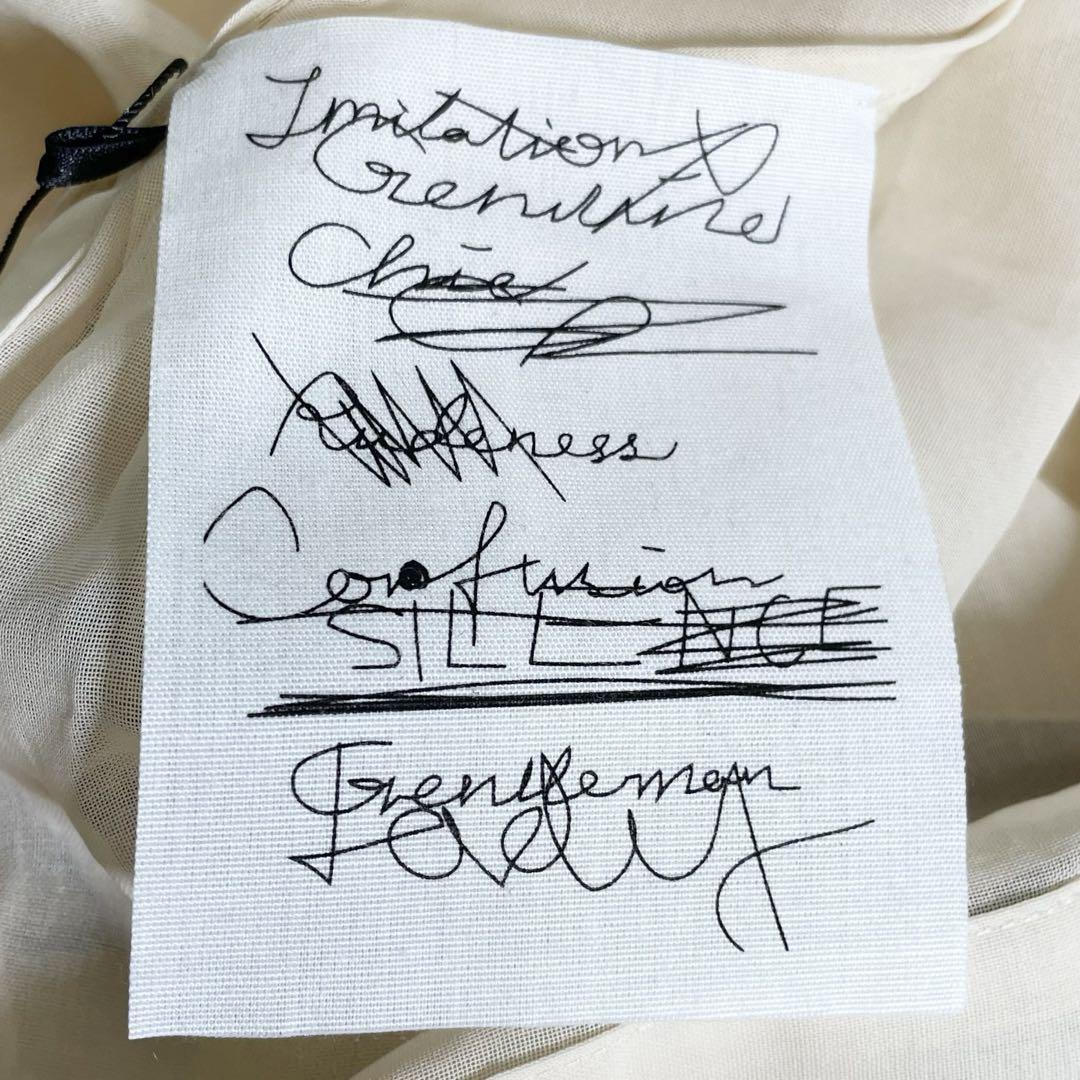 Imitation
Genuine
Chic
Rudeness
Confusion
SILENCE
Gentleman
Lady